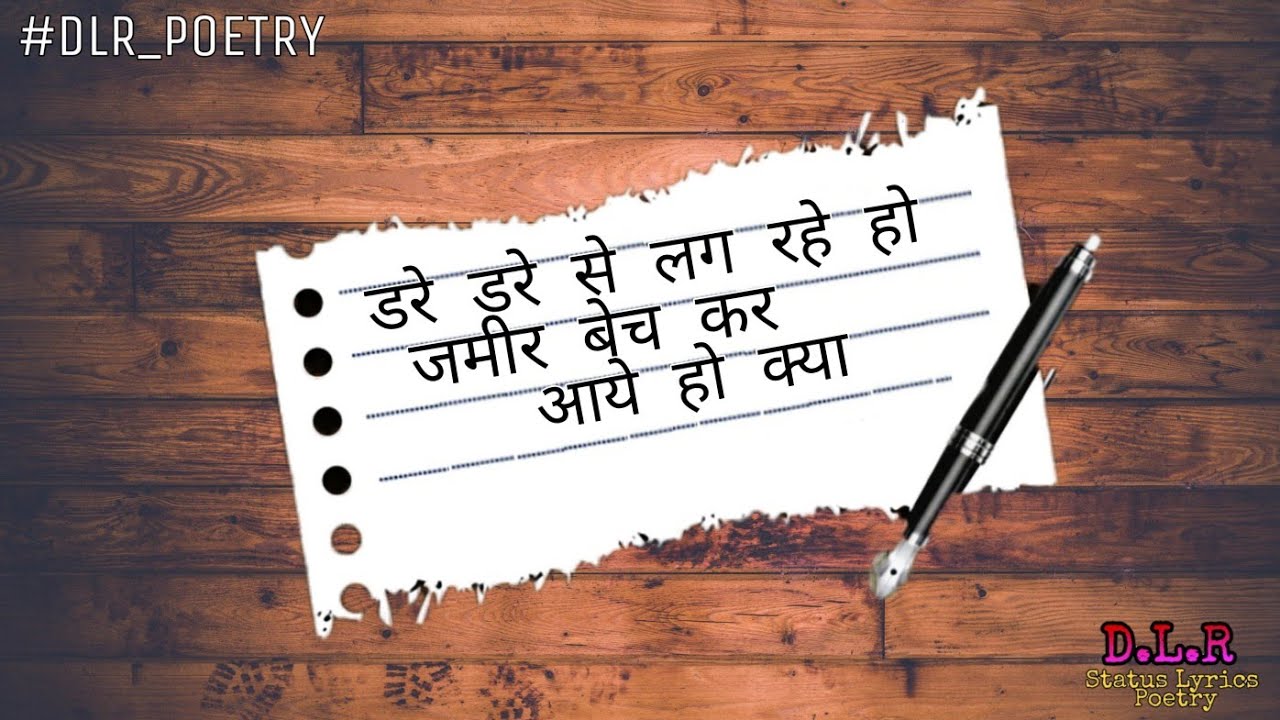 #DLR_POETRY
डरे डरे से लग रहे हो
जमीर बेच कर
आये हो क्या
D.L.R
Status Lyrics
Poetry